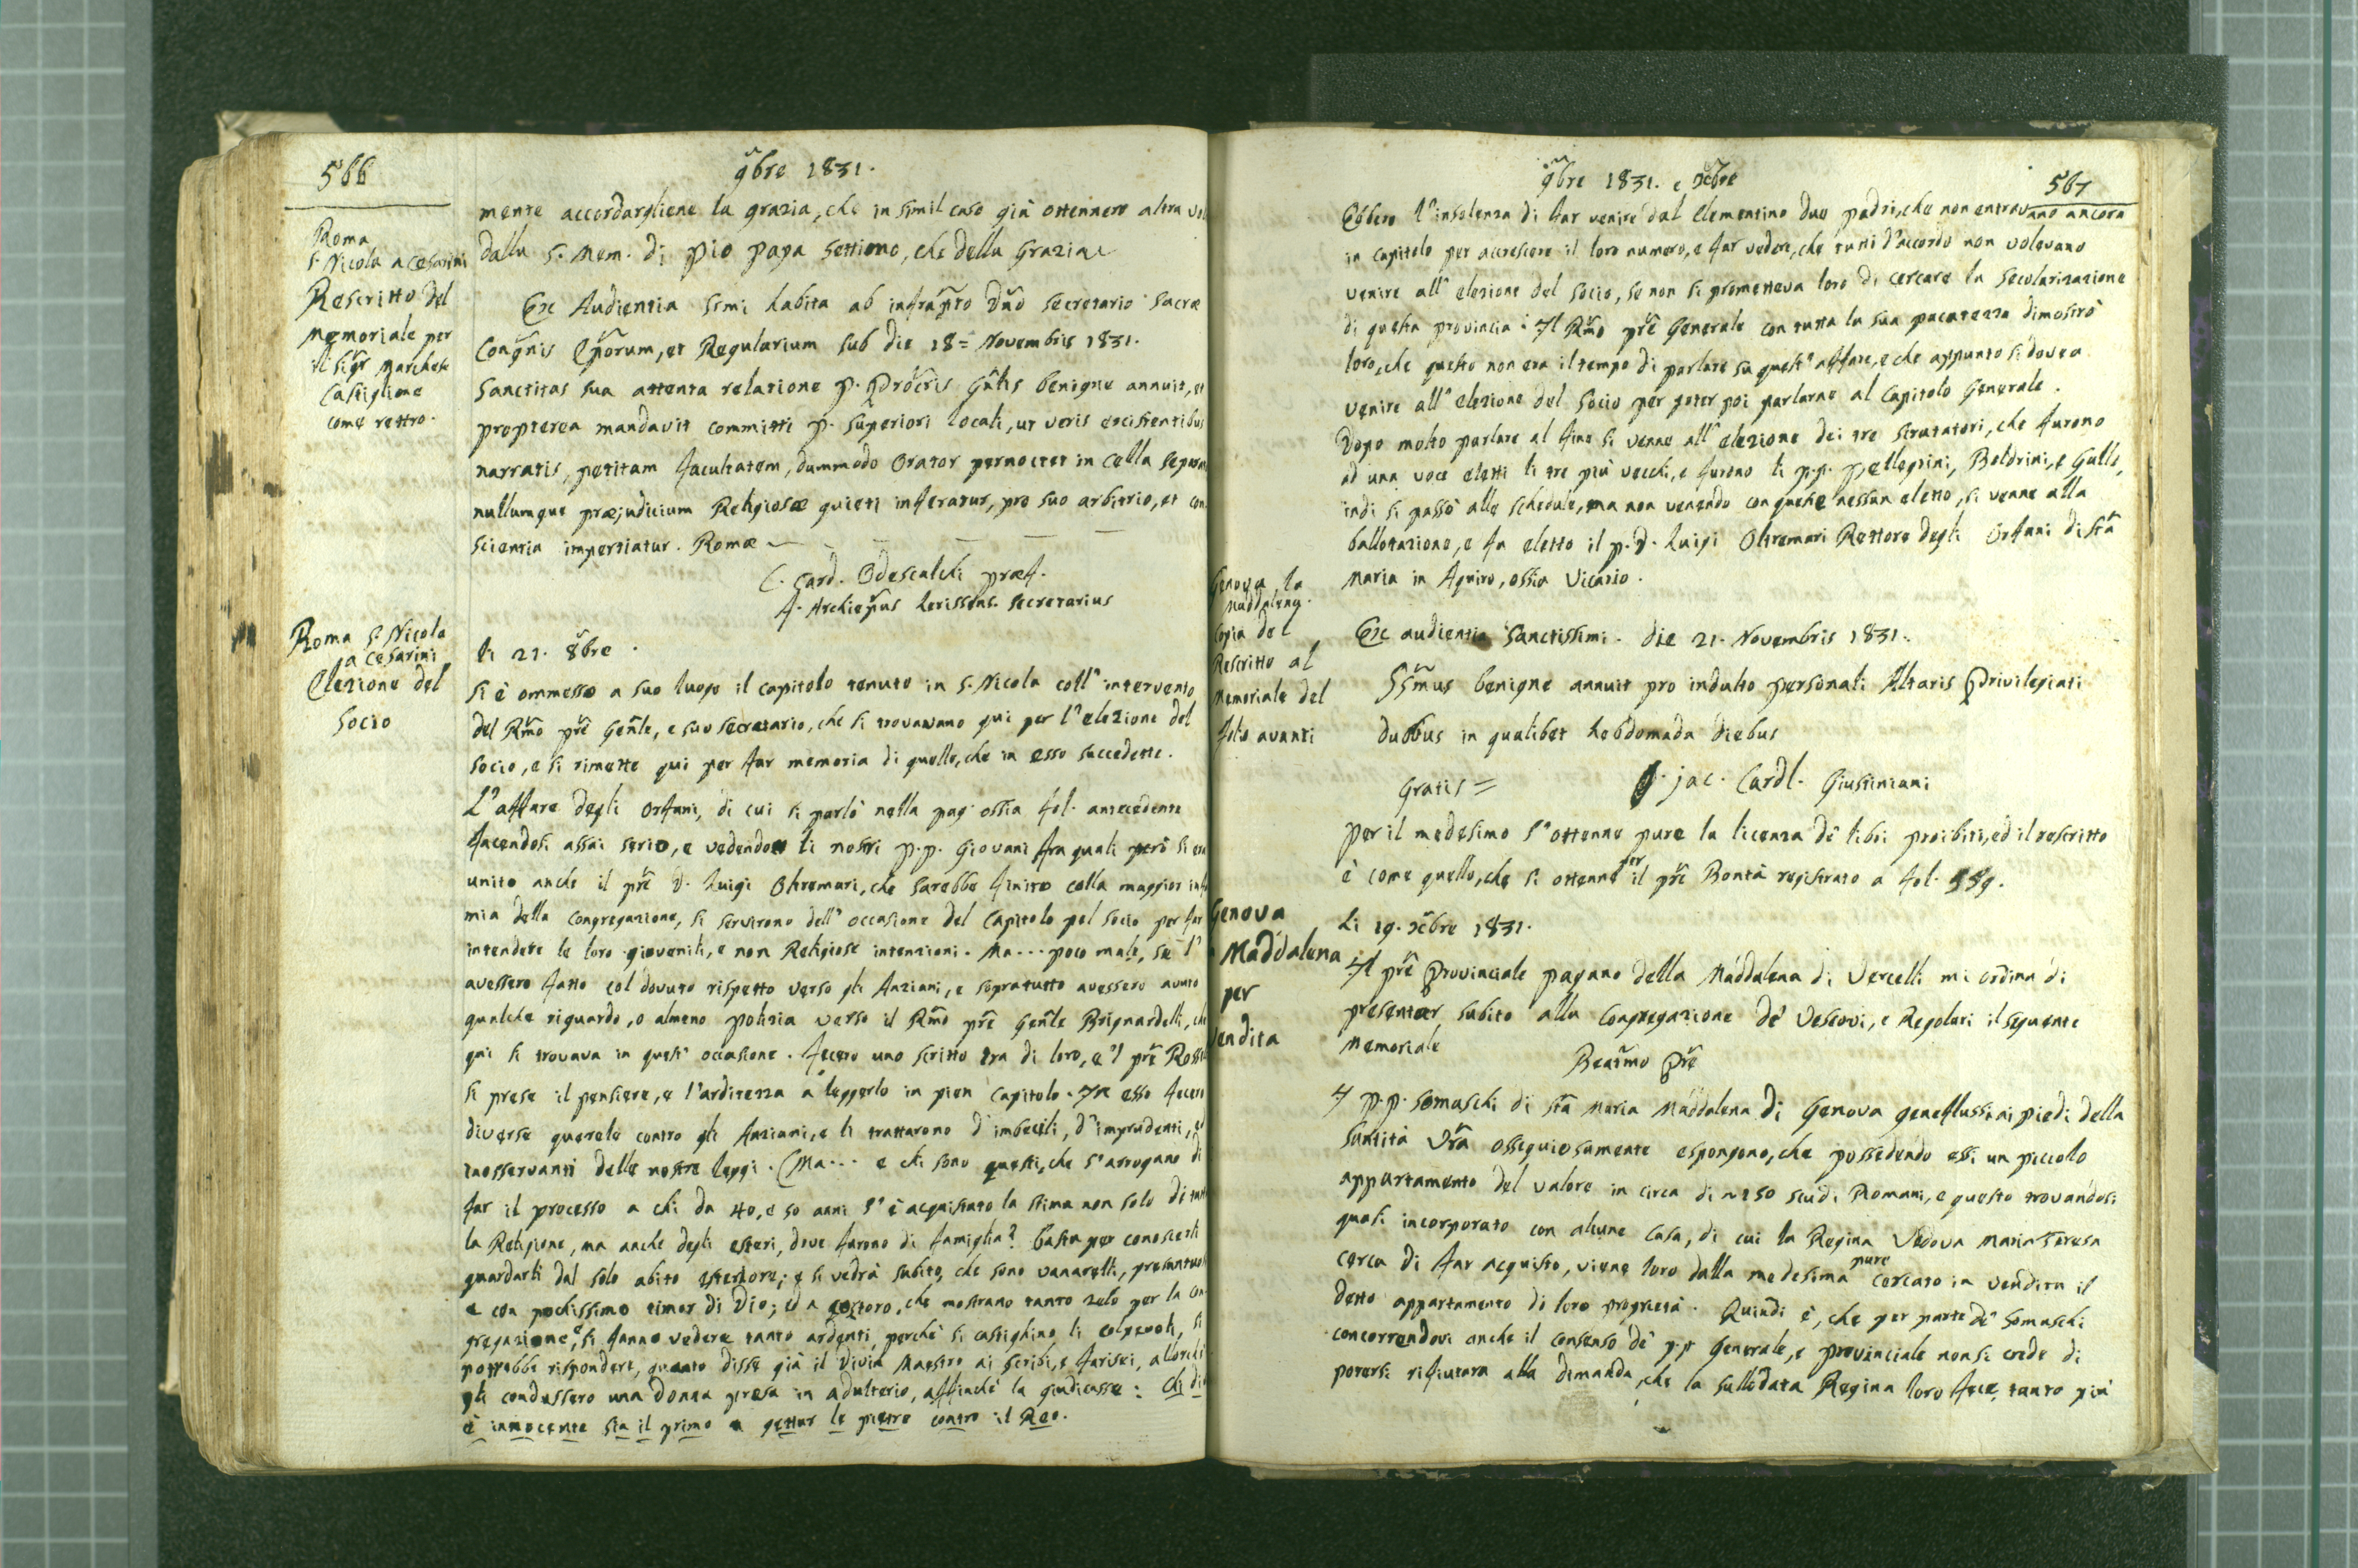 566
9bre 1831.
Roma
S. Nicola a Cesarini
Rescritto del
Memoriale per
il Sigr Marchese
Castiglione
come rettro.
mente accordargliene la grazia, che in simil caso già ottennero altra
dalla S. Mem. di Pio Papa Settimo, che della Grazia
Ex Audientia Ssmi habita ab infrapto Dno Secretario Sacræ
Congnis Eporum, et Regularium sub die 18= Novembris 1831.
Sanctitas sua attenta relatione P. Procris Gnlis benigne annuit, et
propterea mandavit committi P. Superiori locali, ut veris existentibus
narratis, petitam facultatem, dummodo Orator pernoctet in cella
nullumque præjudicium Religiosæ quieti inferatur, pro suo arbitrio, et con
scientia impertiatur. Romæ
C. Card. Odescalchi Præf.
A. Archiepus Secretarius
Roma S. Nicola
a Cesarini
Elezione del
Socio
li 21. 8bre.
Si è ommesso a suo luogo il capitolo tenuto in S. Nicola coll' intervento
del Rmo Pre Genle, e suo Secretario, che si trovavano qui per l' elezione del
Socio, e si rimette qui per far memoria di quello, che in esso succedette.
L' affare degli Orfani, di cui si parlò nella pag. ossia fol. antecedente
facendosi assai serio, e vedendo li nostri P.P. Giovani fra quali però si era
unito anche il Pre D. Luigi Oltremari, che sarebbe finito colla maggior
mia della Congregazione, si servirono dell' occasione del Capitolo pel Socio, per far
intendere le loro giovenili, e non Religiose intenzioni. Ma... poco male, se l'
avessero fatto col dovuto rispetto verso gli Anziani, e sopratutto avessero avuto
qualche riguardo, o almeno polizia verso il Rmo Pre Genle Brignardelli, che
qui si trovava in quest' occasione. Fecero uno scritto tra di loro, e 'l Pre
si prese il pensiere, e l' arditezza a leggerlo in pien Capitolo. In esso fecero
diverse querele contro gli Anziani, e li trattarono d' imbecili, d' imprudenti,
inosservanti delle nostre leggi. (Ma... e chi sono questi, che s' arrogano di
far il processo a chi da 40, e 50 anni s' è acquistato la stima non solo di
la Religione, ma anche degli esteri, dove furono di famiglia? Basta per conoscerli
guardarli dal solo abito esteriore; e si vedrà subito, che sono vanarelli,
e con pochissimo timor di Dio; ed a costoro, che mostrano tanto zelo per la con
gregazione, e si fanno vedere tanto ardenti, perchè si castighino li colpevoli, si
potrebbe rispondere, quanto disse già il Divin Maestro ai Scribi, e Farisei, allorchè
gli condussero una Donna presa in adulterio, affinchè la giudicasse: Chi di
è innocente sia il primo a gettar le pietre contro il Reo.
9bre 1831. e Xbre
567
Ebbero l' insolenza di far venire dal Clementino due Padri, che non entravano ancora
in Capitolo per accrescere il loro numero, e far vedere, che tutti d' accordo non volevano
venire all' elezione del Socio, se non si prometteva loro di cercare la Secolarizazione
di questa provincia. Il Rmo Pre Generale con tutta la sua pacatezza dimostrò
loro, che questo non era il tempo di parlare su quest' affare, e che appunto si dovea
venire all' elezione del Socio per poter poi parlarne al Capitolo Generale.
Dopo molto parlare al fine si venne all' elezione dei tre Scrutatori, che furono
ad una voce eletti li tre più vecchi, e furono li P.P. Pellegrini, Boldrini, e Galli,
indi si passò alle schedule, ma non venendo con queste nessun eletto, si venne alla
ballotazione, e fu eletto il P. D. Luigi Oltremari Rettore degli Orfani di Sta
Maria in Aquiro, ossia Vicario.
Genova, la
Maddalena.
Copia del
Rescritto al
Memoriale del
folio avanti
Ex audientia Sanctissimi. Die 21. Novembris 1831.
Ssmus benigne annuit pro indulto personali Altaris Privilegiati
duobus in qualibet hebdomada diebus
Gratis =
Jac. Cardl. Giustiniani
Per il medesimo s' ottenne pure la licenza de' libri proibiti, ed il rescritto
è come quello, che si ottenne per il Pre Bontà registrato a fol. 559.
Genova
Maddalena
per
Vendita
Li 19. Xbre 1831.
Il Pre Provinciale Pagano della Maddalena di Vercelli mi ordina di
presentar subito alla Congregazione de' Vescovi, e Regolari il seguente
Memoriale
Beatmo Pre
I P.P. Somaschi di Sta Maria Maddalena di Genova geneflussi ai piedi della
Santità Vra ossequiosamente espongono, che possedendo essi un piccolo
appartamento del valore in circa di 150 scudi Romani, e questo trovandosi
quasi incorporato con alcune Casa, di cui la Regina Vedova Maria Teresa
cerca di far acquisto, viene loro dalla medesima pure cercato in vendita il
detto appartamento di loro proprietà. Quindi è, che per parte de' Somaschi
concorrendovi anche il consenso de' P.P. Generale, e Provinciale non si crede di
potersi rifiutare alla dimanda, che la sullodata Regina loro fece, tanto più